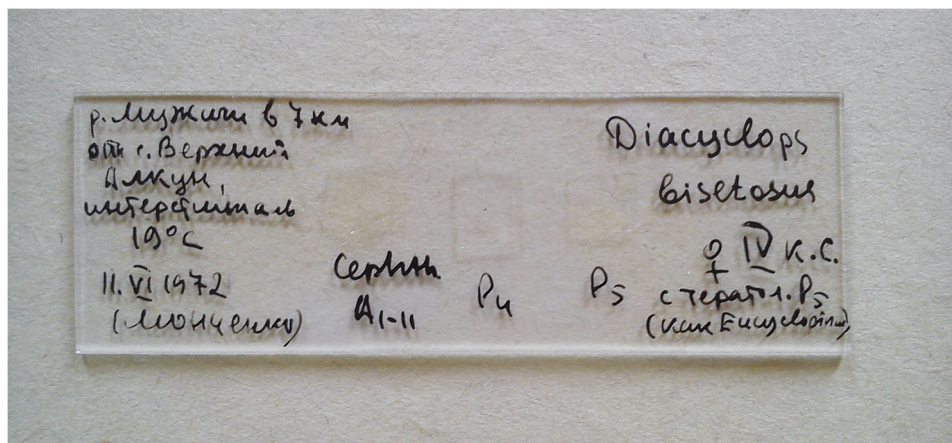 р. Мужичи в 7 км
от с. Верхний
Алкун,
интерстициаль
19°C
11. VI 1972
(Монченко)
A I-II
P4
P5
Diacyclops
bisetosus
♀ IV к.с.
с терател. P5
(как Eucyclopina)